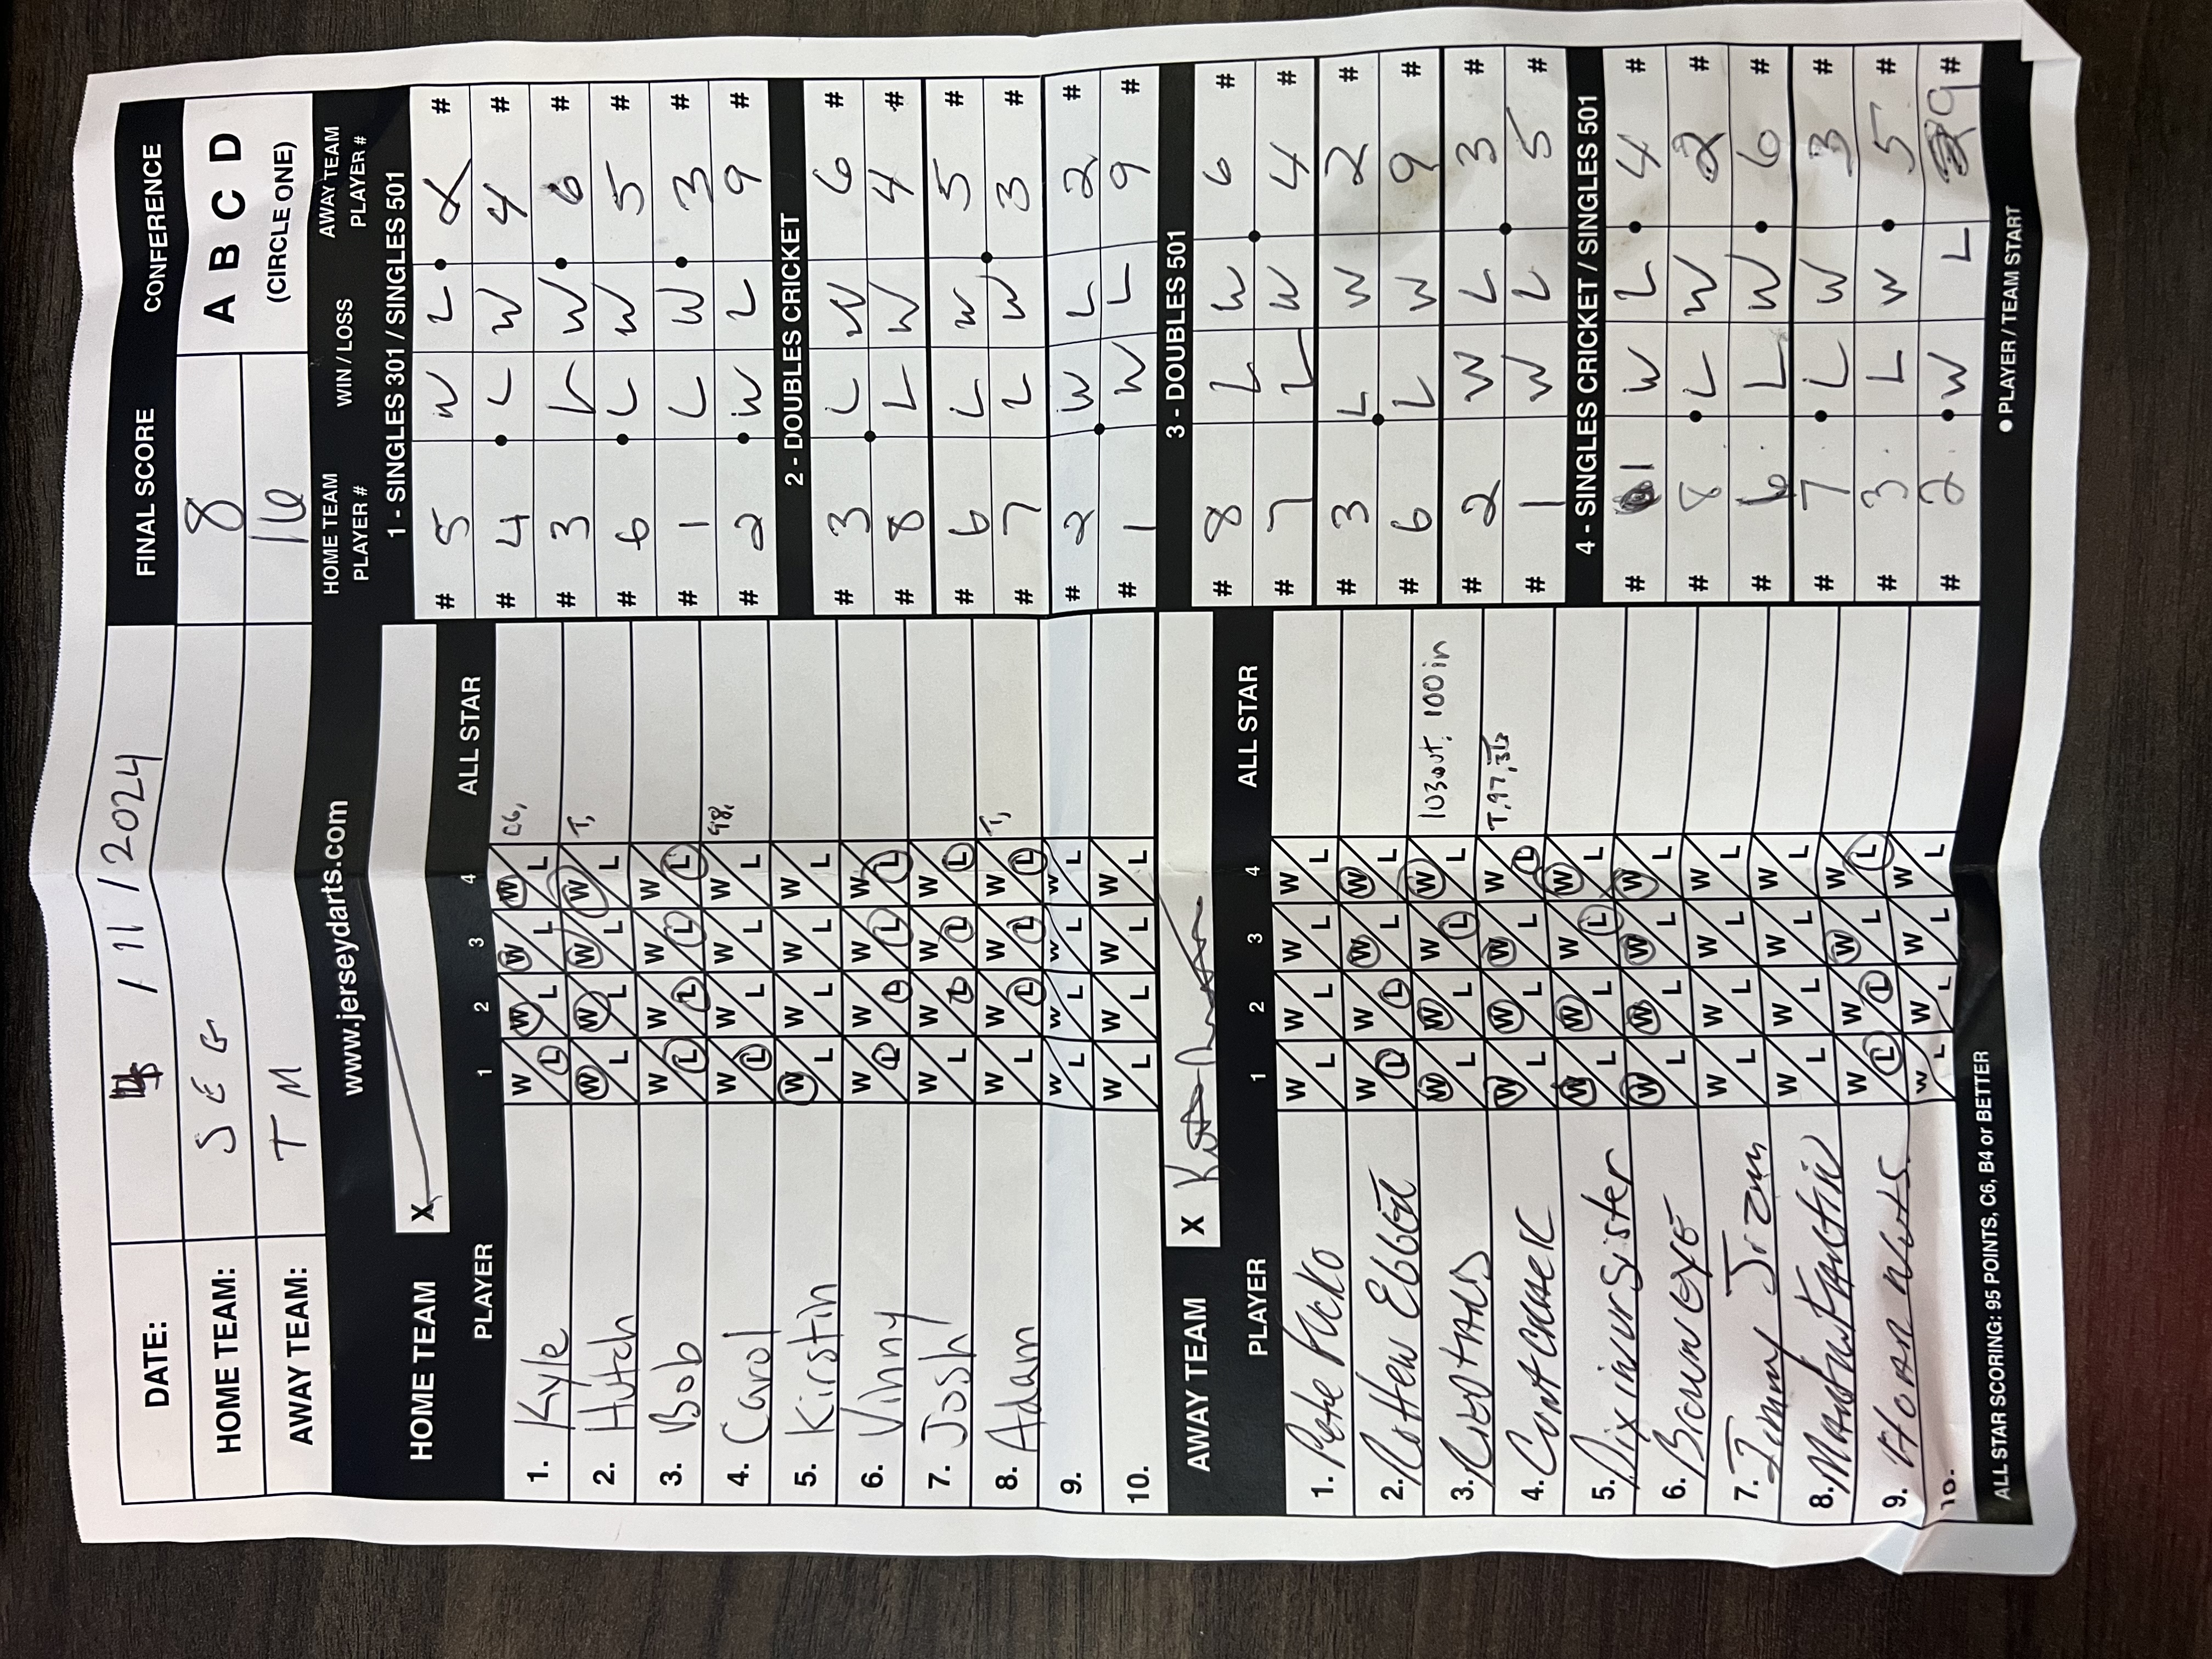 DATE: 4 / 11 / 2024
FINAL SCORE
CONFERENCE
HOME TEAM: SEG
8
A B C D
AWAY TEAM: TM
16
(CIRCLE ONE)
www.jerseydarts.com
HOME TEAM PLAYER #
WIN / LOSS
AWAY TEAM PLAYER #
HOME TEAM
X
PLAYER 1 2 3 4 ALL STAR
1. Kyle W/L W/L W/L W/L C6,
2. Hutch W/L W/L W/L W/L T,
3. Bob W/L W/L W/L W/L
4. Carol W/L W/L W/L W/L 98,
5. Kirstin W/L W/L W/L W/L
6. Vinny W/L W/L W/L W/L
7. Josh W/L W/L W/L W/L
8. Adam W/L W/L W/L W/L T,
9. W/L W/L W/L W/L
10. W/L W/L W/L W/L
AWAY TEAM
X
PLAYER 1 2 3 4 ALL STAR
1. Pete W/L W/L W/L W/L
2. Rotten W/L W/L W/L W/L
3. W/L W/L W/L W/L 103 out, 100 in
4. W/L W/L W/L W/L T, 97,
5. W/L W/L W/L W/L
6. W/L W/L W/L W/L
7. Jimmy W/L W/L W/L W/L
8. W/L W/L W/L W/L
9. W/L W/L W/L W/L
10. W/L W/L W/L W/L
ALL STAR SCORING: 95 POINTS, C6, B4 or BETTER
1 - SINGLES 301 / SINGLES 501
# 5 W L 2 #
# 4 L W 4 #
# 3 L W 6 #
# 6 L W 5 #
# 1 L W 3 #
# 2 W L 9 #
2 - DOUBLES CRICKET
# 3 L W 6 #
# 8 L W 4 #
# 6 L W 5 #
# 7 L W 3 #
# 2 W L 2 #
# 1 W L 9 #
3 - DOUBLES 501
# 8 L W 6 #
# 7 L W 4 #
# 3 L W 2 #
# 6 L W 9 #
# 2 W L 3 #
# 1 W L 5 #
4 - SINGLES CRICKET / SINGLES 501
# 1 W L 4 #
# 8 L W 2 #
# 6 L W 6 #
# 7 L W 3 #
# 3 L W 5 #
# 2 W L 9 #
● PLAYER / TEAM START